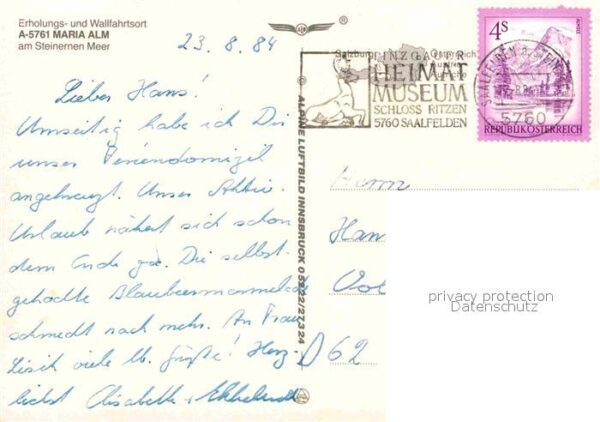 Erholungs- und Wallfahrtsort
A-5761 MARIA ALM
am Steinernen Meer
23. 8. 84
Lieber Hans!
Umseitig habe ich Dir
unser Feriendomizil
angekreuzt. Unser Aktiv-
Urlaub nähert sich schon
dem Ende zu. Die selbst-
gekochte Blaubeermarmelade
schmeckt nach mehr. An Frau
viele lb. Grüße! Herz-
lichst Elisabeth +
© ALPINE LUFTBILD INNSBRUCK
Salzburg
Österreich
PINZGAUER
HEIMAT
MUSEUM
SCHLOSS RITZEN
5760 SAALFELDEN
4S
REPUBLIK ÖSTERREICH
5760
Herrn
Han
D 62
privacy protection
Datenschutz